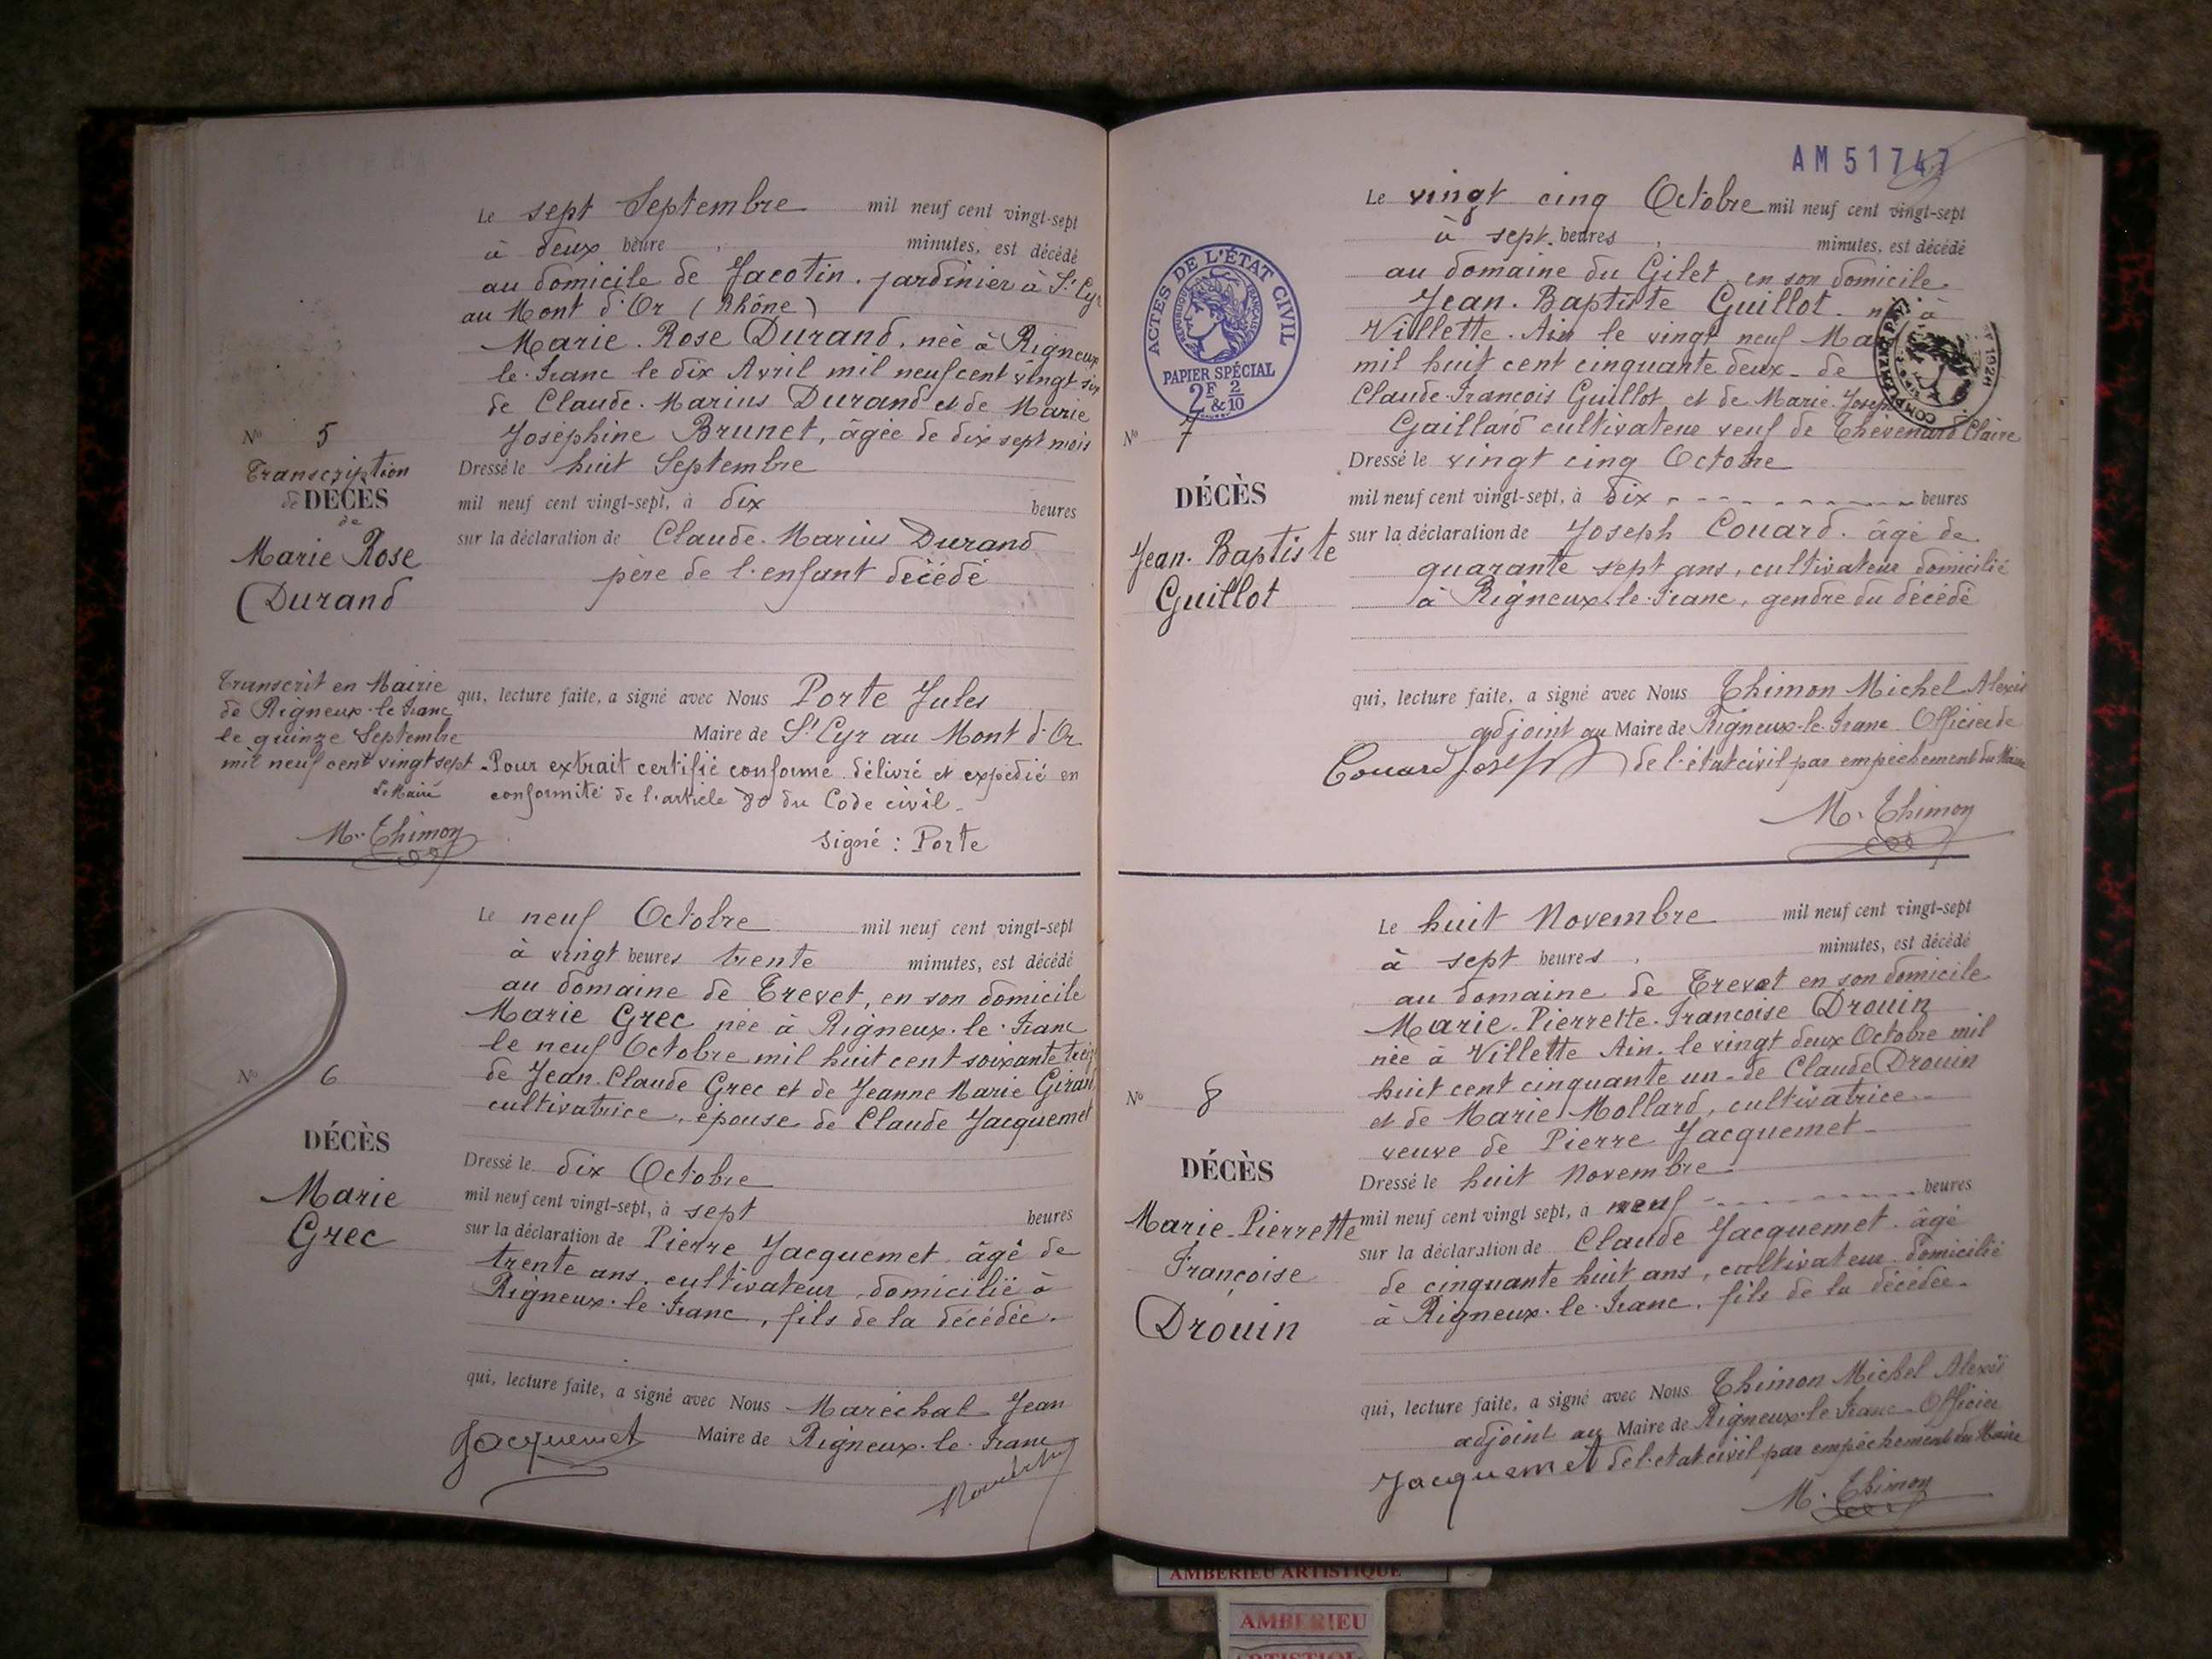 Le sept Septembre mil neuf cent vingt-sept
à deux heure , minutes, est décédé
au domicile de Jacotin. jardinier à St Cyr
au Mont d'Or (Rhône)
Marie. Rose Durand, née à Rigneux
le. Franc le dix Avril mil neuf cent vingt six
de Claude. Marius Durand et de Marie
Joséphine Brunet, âgée de dix sept mois
N° 5
Transcription
de DÉCÈS
de
Marie Rose
Durand
Dressé le huit Septembre
mil neuf cent vingt-sept, à dix heures
sur la déclaration de Claude. Marius Durand
père de l'enfant décédé
Transcrit en Mairie
de Rigneux-le Franc
le quinze Septembre
mil neuf cent vingt sept
Le Maire
M. Thimon
qui, lecture faite, a signé avec Nous Porte Jules
Maire de St Cyr au Mont d'Or
Pour extrait certifié conforme délivré et expédié en
conformité de l'article 80 du Code civil_
signé : Porte
Le neuf Octobre mil neuf cent vingt-sept
à vingt heures trente minutes, est décédé
au domaine de Trevet, en son domicile
Marie Grec née à Rigneux. le. Franc
le neuf Octobre mil huit cent soixante treiz
de Jean. Claude Grec et de Jeanne Marie
cultivatrice, épouse de Claude Jacquemet
N° 6
DÉCÈS
Marie
Grec
Dressé le dix Octobre
mil neuf cent vingt-sept, à sept heures
sur la déclaration de Pierre Jacquemet âgé de
trente ans, cultivateur, domicilié à
Rigneux. le. Franc, fils de la décédée.
qui, lecture faite, a signé avec Nous Maréchal Jean
Maire de Rigneux. le. Franc
Jacquemet
AM 51747
Le vingt cinq Octobre mil neuf cent vingt-sept
à sept heures , minutes, est décédé
au domaine du Gilet en son domicile
Jean. Baptiste Guillot né à
Villette. Ain le vingt neuf Ma
mil huit cent cinquante deux_ de
Claude Francois Guillot et de Marie. Joseph
Gaillard cultivateur veuf de Thévenard Claire
ACTES DE L'ÉTAT CIVIL
RÉPUBLIQUE FRANÇAISE
PAPIER SPÉCIAL
2F & 2/10
N° 7
DÉCÈS
Jean. Baptiste
Guillot
Dressé le vingt cinq Octobre
mil neuf cent vingt-sept, à dix heures
sur la déclaration de Joseph Couard. âgé de
quarante sept ans, cultivateur domicilié
à Rigneux. le. Franc, gendre du décédé
qui, lecture faite, a signé avec Nous Thimon Michel Alexis
adjoint au Maire de Rigneux-le-Franc Officier de
Couard Joseph de l'état civil par empêchement du Maire
M. Thimon
Le huit Novembre mil neuf cent vingt-sept
à sept heures , minutes, est décédé
au domaine de Trevet en son domicile
Marie. Pierrette. Francoise Drouin
née à Villette Ain. le vingt deux Octobre mil
huit cent cinquante un_ de Claude Drouin
et de Marie Mollard, cultivatrice
veuve de Pierre Jacquemet_
N° 8
DÉCÈS
Marie_Pierrette
Françoise
Drouin
Dressé le huit Novembre
mil neuf cent vingt sept, à neuf heures
sur la déclaration de Claude Jacquemet. âgé
de cinquante huit ans, cultivateur domicilié
à Rigneux. le. Franc, fils de la décédée_
qui, lecture faite, a signé avec Nous Thimon Michel Alexis
adjoint au Maire de Rigneux-le Franc_ Officier
Jacquemet de l'état civil par empêchement du Maire
M. Thimon
AMBERIEU ARTISTIQUE
AMBERIEU